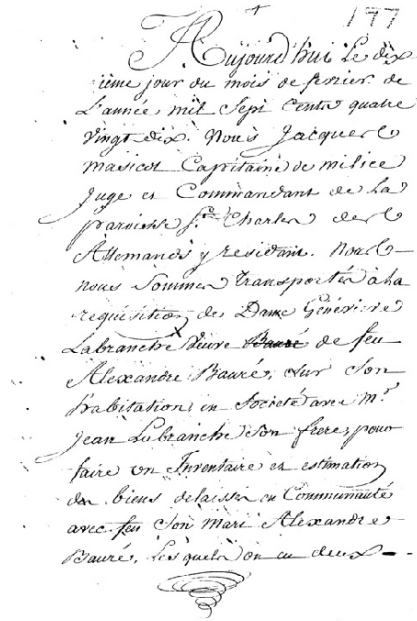 177
Aujourd'hui le dix
ième jour du mois de fevrier de
L'année mil Sept Cents quatre
Vingt dix. Nous Jacques
masicot Capitaine de milice
Juge et Commandant de La
paroisse St. Charles des
Allemands y residant. Nous
nous Sommes transportés a la
requisition de Dame Généviève
Labranche Veuve Bauré de feu
Alexandre Bauré, sur Son
habitation, en Societé avec Mr.
Jean Labranche Son frere, pour
faire un Inventaire et estimation
des biens delaissés en Communauté
avec feu Son mari Alexandre
Bauré, Lesquels on eu deux